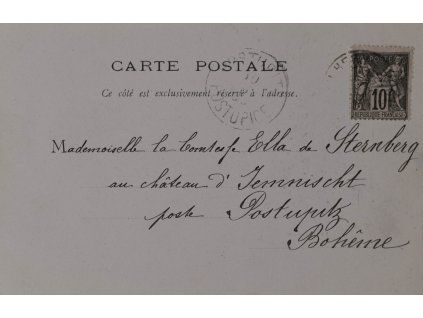 CARTE POSTALE
Ce côté est exclusivement réservé à l'adresse.
POSTES
10
Mademoiselle la Comtesse Ella de Sternberg
au château d'Jemnischt
poste Postupitz
Bohême